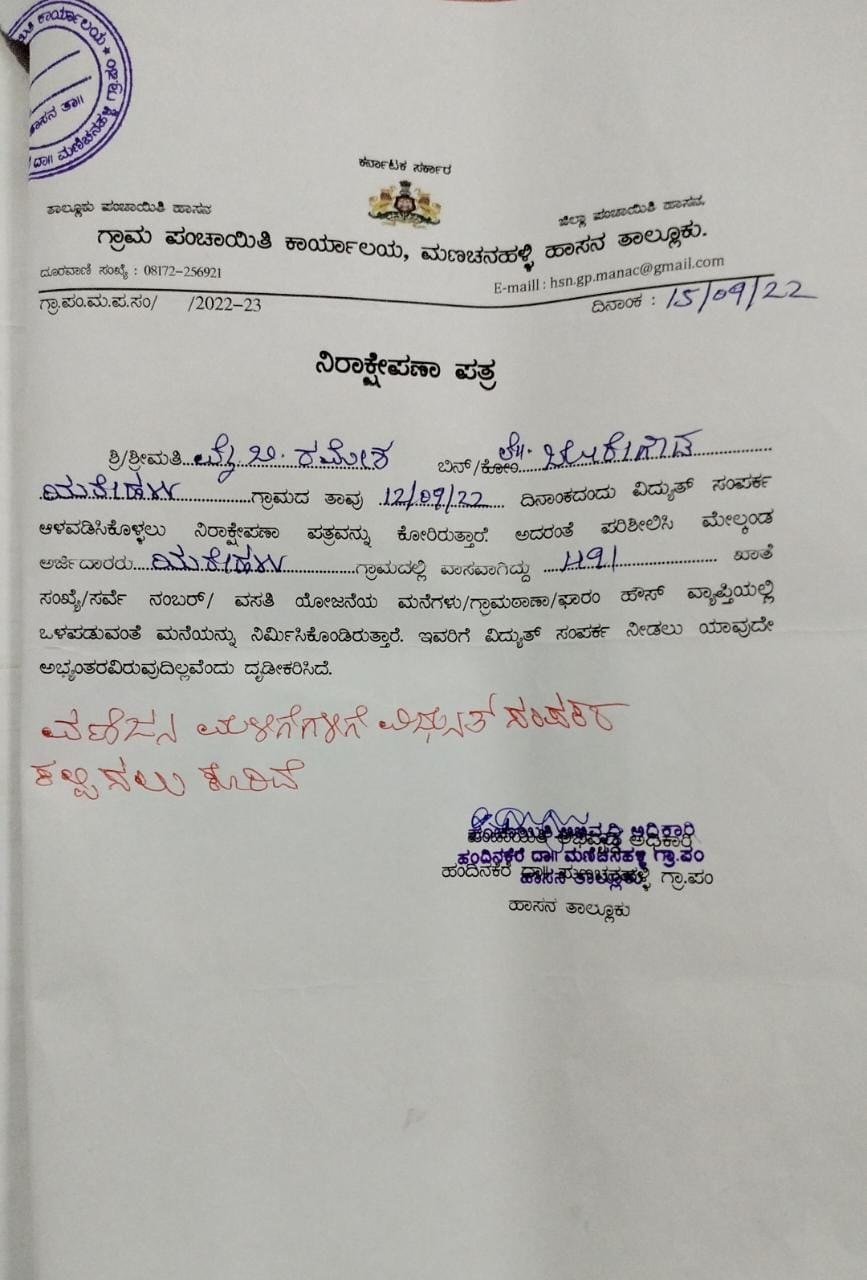 ಕರ್ನಾಟಕ ಸರ್ಕಾರ
ತಾಲ್ಲೂಕು ಪಂಚಾಯಿತಿ ಹಾಸನ
ಜಿಲ್ಲಾ ಪಂಚಾಯಿತಿ ಹಾಸನ.
ಗ್ರಾಮ ಪಂಚಾಯಿತಿ ಕಾರ್ಯಾಲಯ, ಮಣಚನಹಳ್ಳಿ ಹಾಸನ ತಾಲ್ಲೂಕು.
ದೂರವಾಣಿ ಸಂಖ್ಯೆ : 08172-256921
E-maill : hsn.gp.manac@gmail.com
ಗ್ರಾ.ಪಂ.ಮ.ಪ.ಸಂ/ /2022-23
ದಿನಾಂಕ : 15/09/22
ನಿರಾಕ್ಷೇಪಣಾ ಪತ್ರ
ಶ್ರಿ/ಶ್ರೀಮತಿ ವೈ.ಬಿ. ರಮೇಶ ಬಿನ್/ಕೋಂ
ಗ್ರಾಮದ ತಾವು 12/09/22 ದಿನಾಂಕದಂದು ವಿದ್ಯುತ್ ಸಂಪರ್ಕ
ಆಳವಡಿಸಿಕೊಳ್ಳಲು ನಿರಾಕ್ಷೇಪಣಾ ಪತ್ರವನ್ನು ಕೋರಿರುತ್ತಾರೆ. ಅದರಂತೆ ಪರಿಶೀಲಿಸಿ ಮೇಲ್ಕಂಡ
ಅರ್ಜಿದಾರರು ಗ್ರಾಮದಲ್ಲಿ ವಾಸವಾಗಿದ್ದು ಖಾತೆ
ಸಂಖ್ಯೆ/ಸರ್ವೆ ನಂಬರ್/ ವಸತಿ ಯೋಜನೆಯ ಮನೆಗಳು/ಗ್ರಾಮಠಾಣಾ/ಫಾರಂ ಹೌಸ್ ವ್ಯಾಪ್ತಿಯಲ್ಲಿ
ಒಳಪಡುವಂತೆ ಮನೆಯನ್ನು ನಿರ್ಮಿಸಿಕೊಂಡಿರುತ್ತಾರೆ. ಇವರಿಗೆ ವಿದ್ಯುತ್ ಸಂಪರ್ಕ ನೀಡಲು ಯಾವುದೇ
ಅಭ್ಯಂತರವಿರುವುದಿಲ್ಲವೆಂದು ದೃಡೀಕರಿಸಿದೆ.
ಮಳಿಗೆಗಳಿಗೆ ವಿಧ್ಯುತ್ ಸಂಪರ್ಕ
ಕಲ್ಪಿಸಲು ಕೋರಿದೆ
ಪಂಚಾಯಿತಿ ಅಭಿವೃದ್ಧಿ ಅಧಿಕಾರಿ
ಹಂದಿನಕೆರೆ ದಾ|| ಮಣಚನಹಳ್ಳಿ ಗ್ರಾ.ಪಂ
ಹಾಸನ ತಾಲ್ಲೂಕು